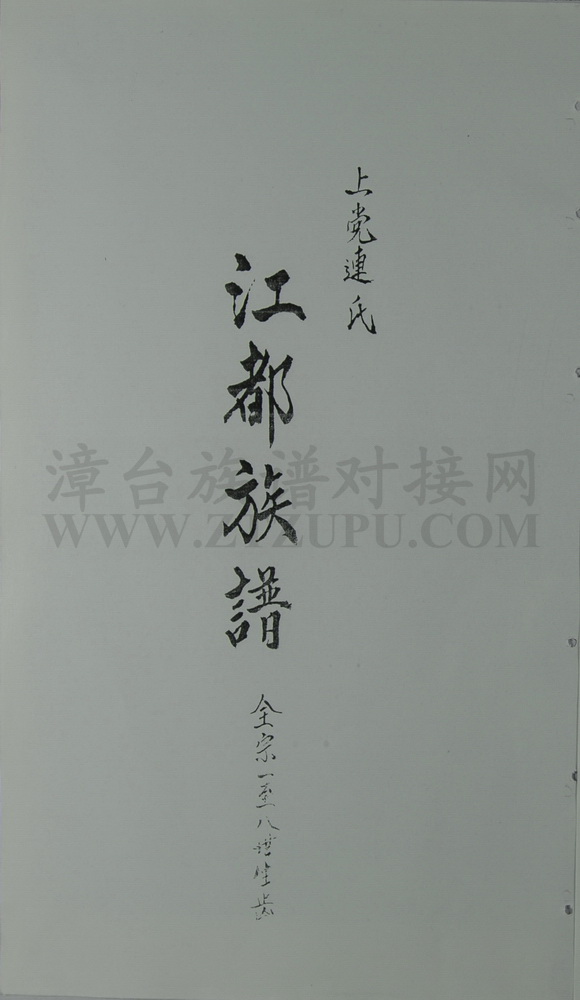 上党連氏
江都族譜
全宗一至八世生齒
漳台族谱对接网
WWW.ZTZUPU.COM